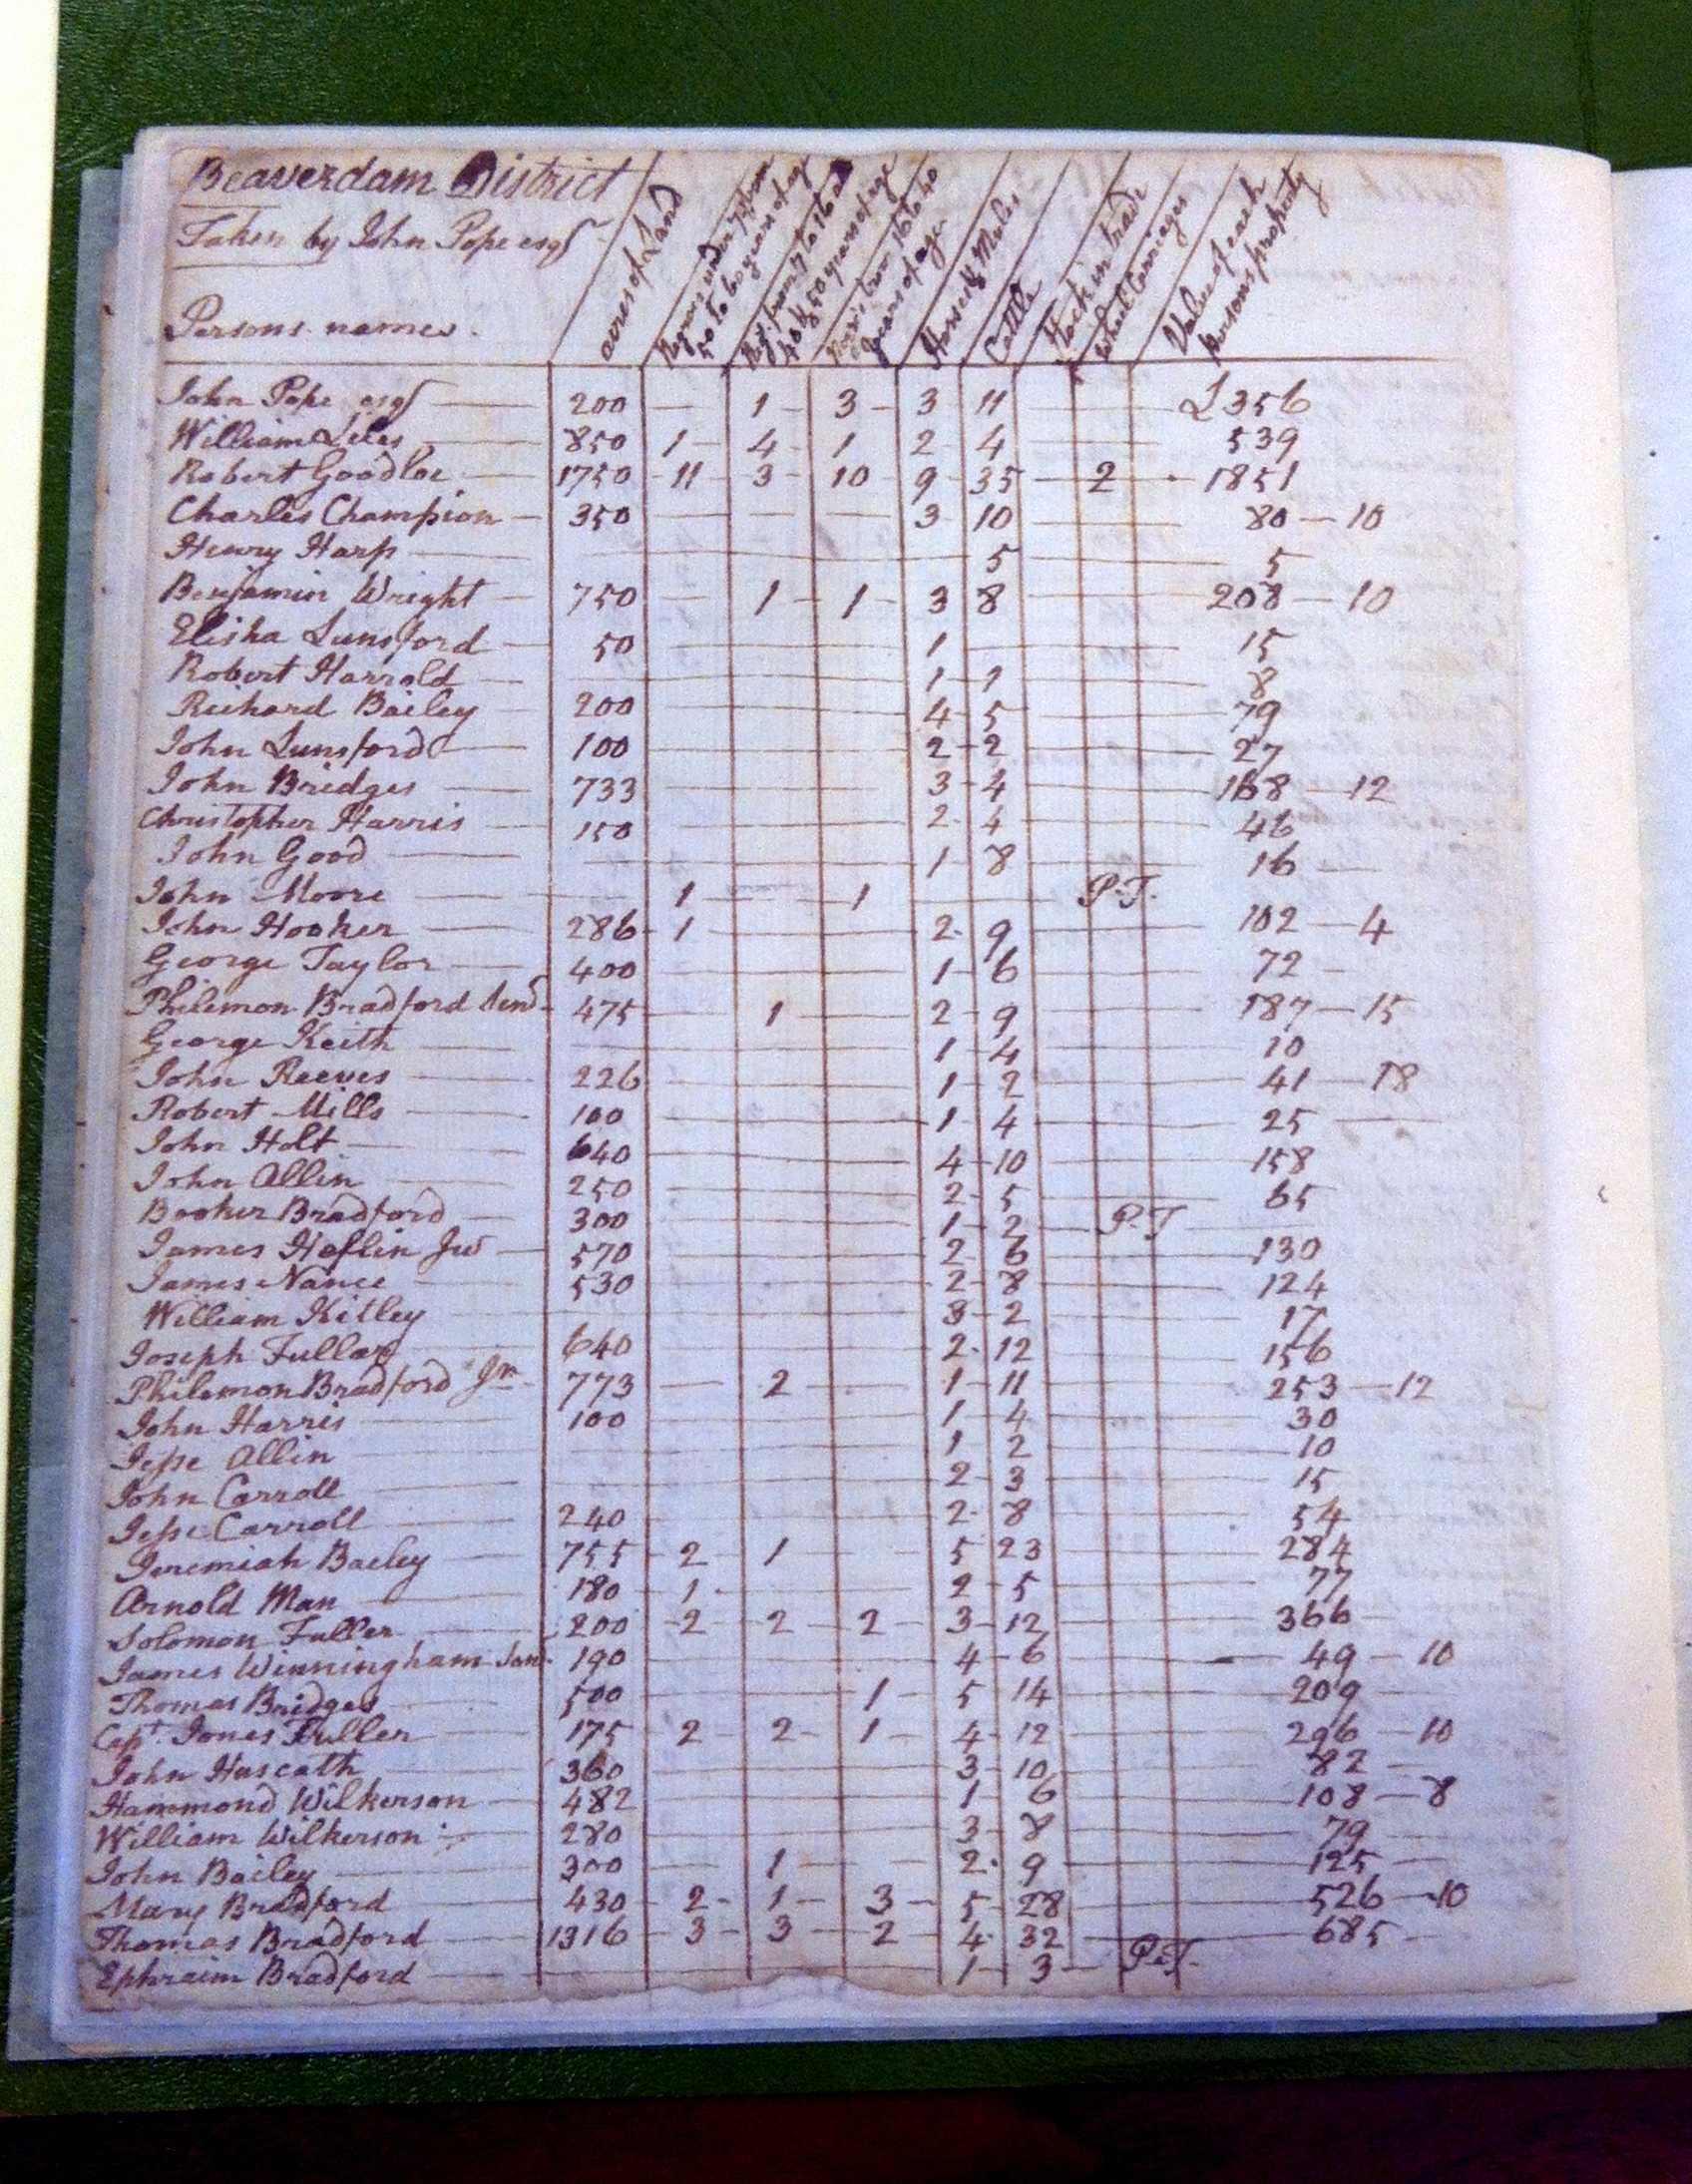 Beaverdam District
Taken by John Pope esqr
Persons names.
acres of Land
Negroes under 7 & from 50 to 60 years of age
Neg. from 7 to 16 & 40 to 50 years of age
Negs. from 16 to 40 years of age
Horses & Mules
Cattle
Stock in trade
Wheel Carriages
Value of each persons property
John Pope esqr — 200 — 1 — 3 — 3 11 — £356
William Liles — 850 1 — 4 — 1 2 4 — 539
Robert Goodloe — 1750 — 11 — 3 — 10 — 9 — 35 — 2 — 1851
Charles Champion — 350 — 3 10 — 80 — 10
Henry Harp — 5 — 5
Benjamin Wright — 750 — 1 — 1 — 3 8 208 — 10
Elisha Lunsford — 50 — 1 — 15
Robert Harrold — 1 — 1 — 8
Richard Bailey — 200 — 4 — 5 — 79
John Lunsford — 100 — 2 — 2 — 27
John Bridges — 733 — 3 — 4 — 168 — 12
Christopher Harris — 150 — 2 — 4 — 46
John Good — 1 — 8 — 16 —
John Moore — 1 — 1 — P.T.
John Hooker — 286 — 1 — 2 — 9 — 102 — 4
George Taylor — 400 — 1 — 6 — 72 —
Philemon Bradford Senr — 475 — 1 — 2 — 9 — 187 — 15
George Keith — 1 — 4 — 10
John Reeves — 226 — 1 — 2 — 41 — 18
Robert Mills — 100 — 1 — 4 — 25 —
John Holt — 640 — 4 — 10 — 158
John Allin — 250 — 2 — 5 — 65
Booker Bradford — 300 — 1 — 2 — P.T
James Heflin Junr — 570 — 2 — 6 — 130
James Nance — 530 — 2 — 8 — 124
William Kitley — 3 — 2 — 17
Joseph Fullar — 640 — 2 — 12 — 156
Philemon Bradford Jr — 773 — 2 — 1 — 11 — 253 — 12
John Harris — 100 — 1 — 4 — 30
Jesse Allin — 1 — 2 — 10
John Carroll — 2 — 3 — 15
Jesse Carroll — 240 — 2 — 8 — 54
Jeremiah Bailey — 755 — 2 — 1 — 5 23 — 284
Arnold Man — 180 — 1 — 2 — 5 — 77
Solomon Fuller — 200 — 2 — 2 — 2 — 3 — 12 — 366
James Winningham Senr — 190 — 4 — 6 — 49 — 10
Thomas Bridges — 500 — 1 — 5 14 — 209
Capt. Jones Fuller — 175 — 2 — 2 — 1 — 4 — 12 — 296 — 10
John Huscath — 360 — 3 — 10 — 82 —
Hammond Wilkerson — 482 — 1 — 6 — 108 — 8
William Wilkerson — 280 — 3 — 8 — 79
John Bailey — 300 — 1 — 2 — 9 — 125 —
Mary Bradford — 430 — 2 — 1 — 3 — 5 — 28 — 526 — 10
Thomas Bradford — 1316 — 3 — 3 — 2 — 4 — 32 — 685 —
Ephraim Bradford — 1 — 3 — P.T.